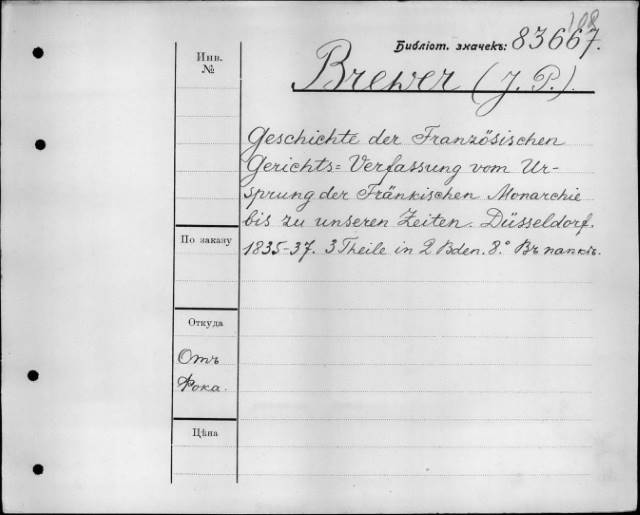 108
Библіот. значекъ: 83667.
Инв.
№
Brewer (J. P.).
Geschichte der Französischen
Gerichts=Verfassung vom Ur-
sprung der Fränkischen Monarchie
bis zu unseren Zeiten. Düsseldorf.
1835-37. 3 Theile in 2 Bden. 8.° Въ папкѣ.
По заказу
Откуда
Отъ
Фока.
Цѣна